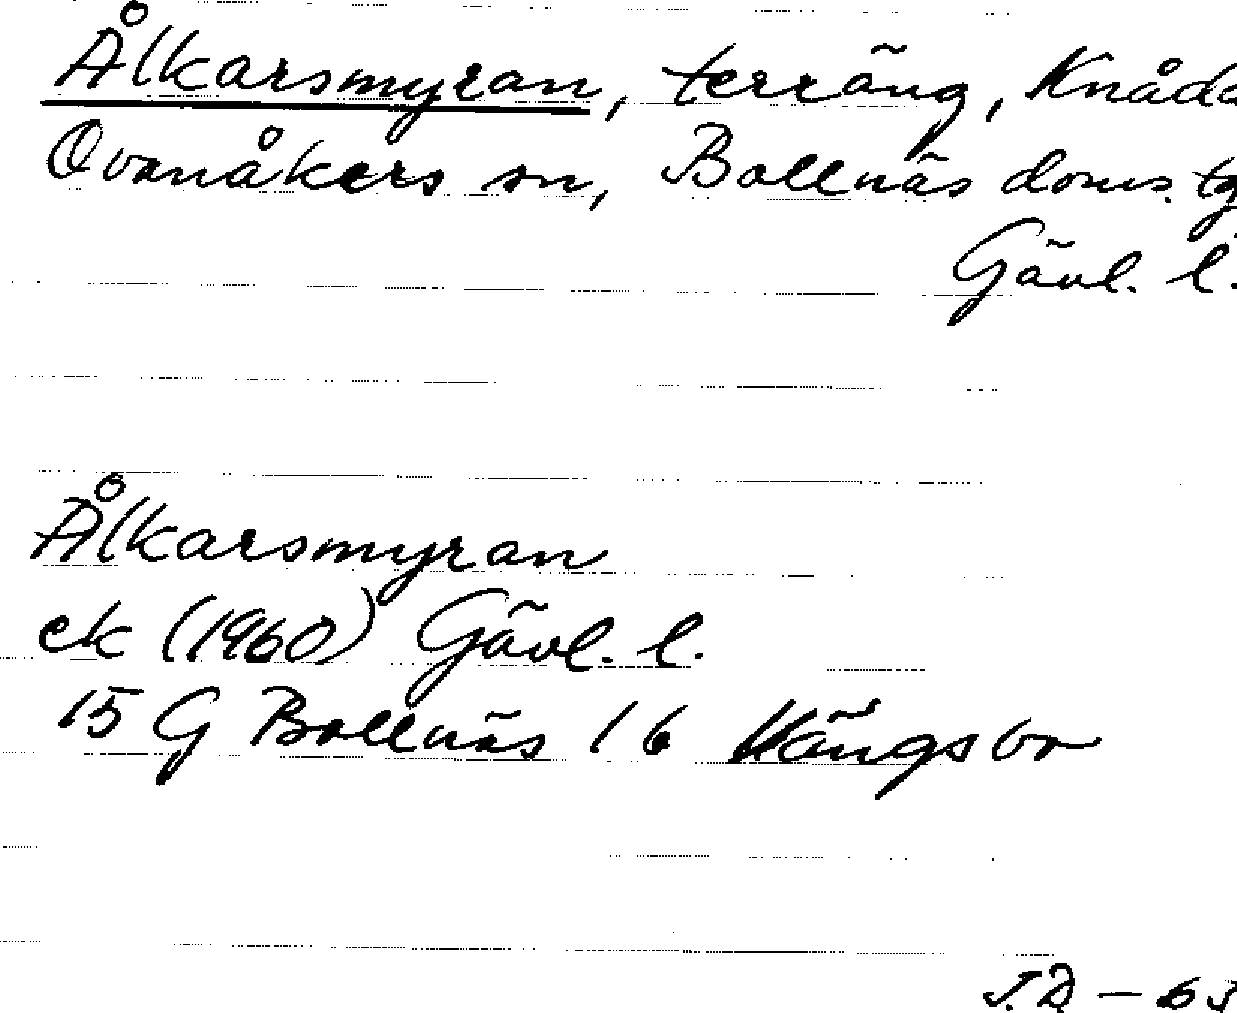 Ålkarsmyran, terräng, Knåda
Ovanåkers sn, Bollnäs doms. tg
Gävl. l.
Ålkarsmyran
ek (1960) Gävl. l.
15 G Bollnäs 16 Hängsbo
J.D – 63